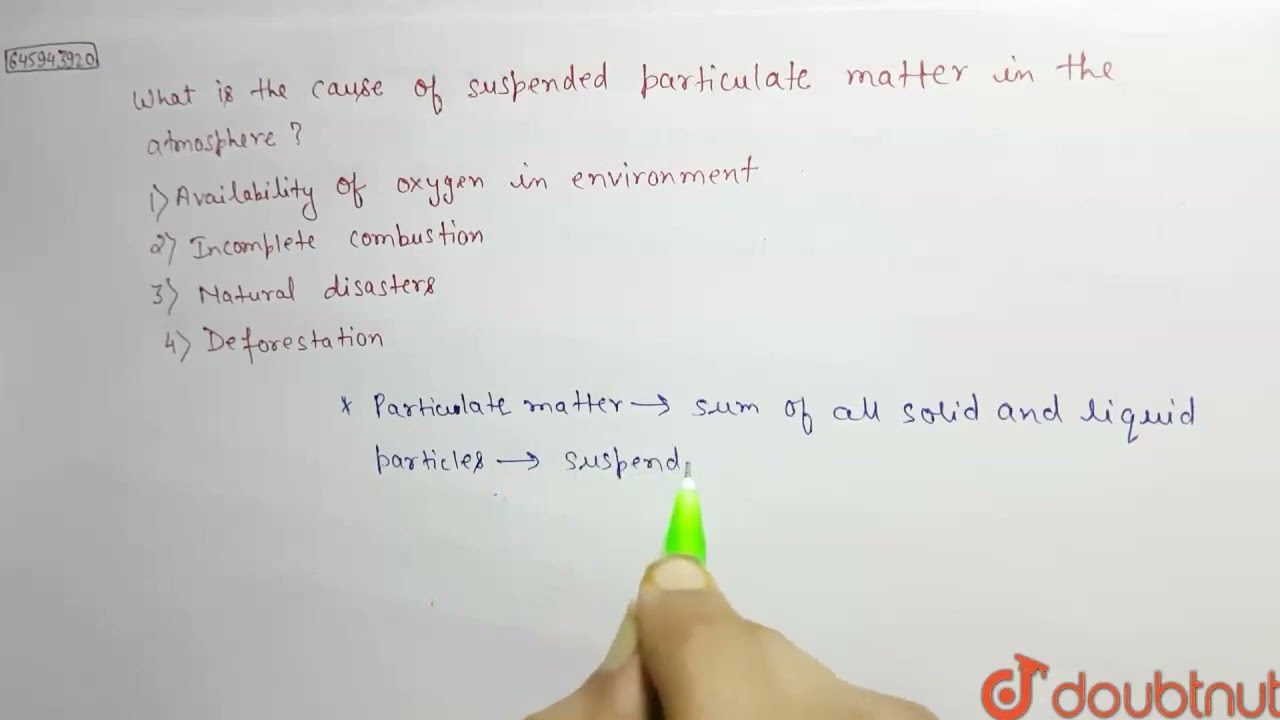 645943920
What is the cause of suspended particulate matter in the
atmosphere ?
1) Availability of oxygen in environment
2) Incomplete combustion
3) Natural disasters
4) Deforestation
* Particulate matter → sum of all solid and liquid
particles → suspend
doubtnut